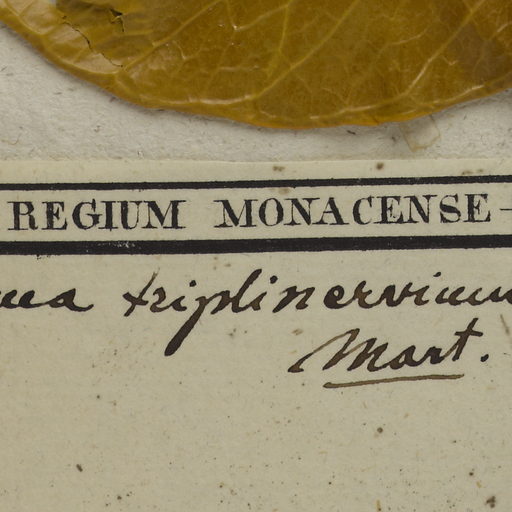 REGIUM MONACENSE
triplinervium
Mart.